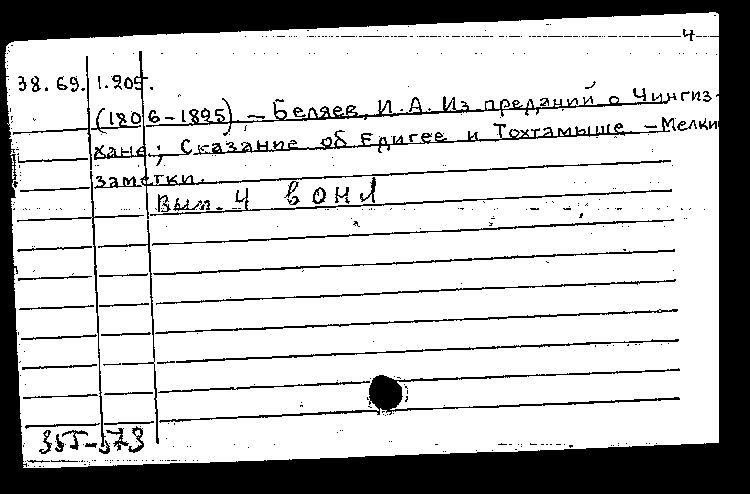 4
38.69.1.205.
(1806-1895). – Беляев, И.А. Из преданий о Чингиз-
хане; Сказание об Едигее и Тохтамыше – Мелки
заметки.
Вып. 4 в ОНЛ